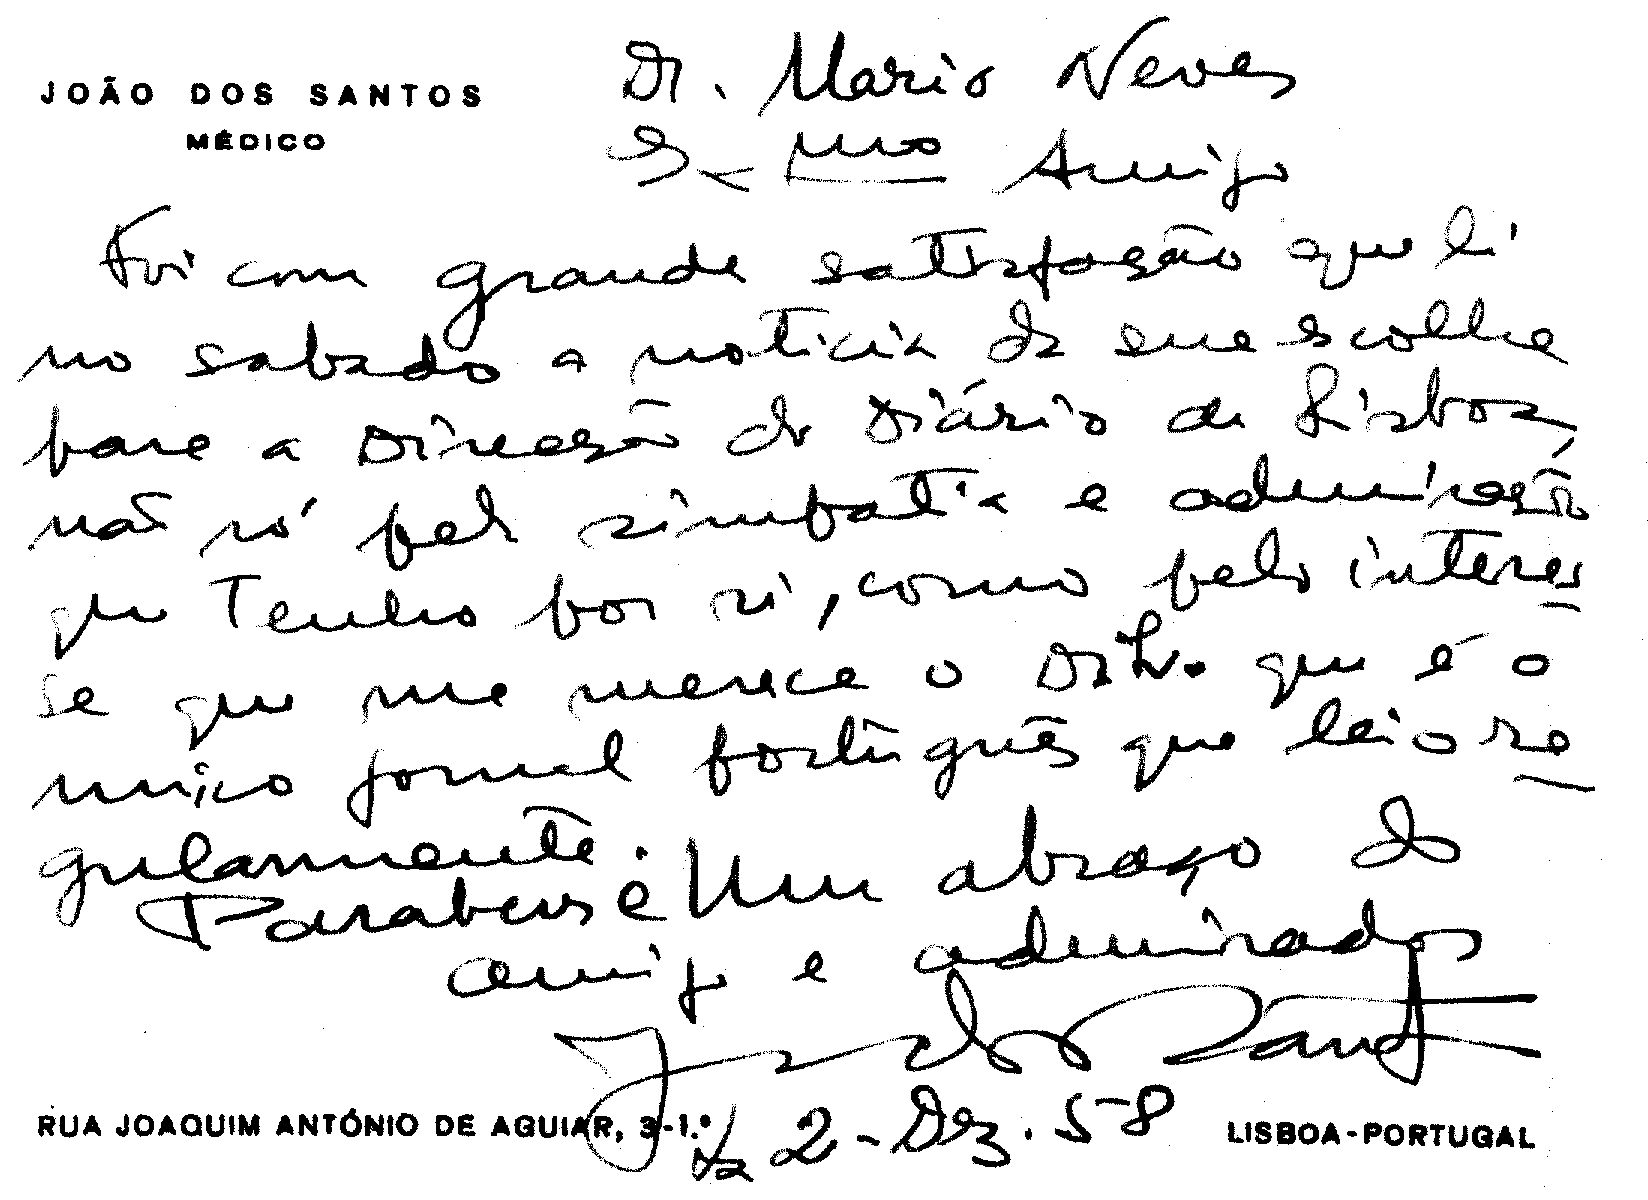 JOÃO DOS SANTOS
MÉDICO
Dr. Mario Neves
Ex.mo Amigo
Foi com grande satisfação que li
no sabado a noticia da sua escolha
para a Direcção do Diário de Lisboa,
não só pela simpatia e admiração
que tenho por si, como pelo interes
se que me merece o que é o
unico jornal português que leio re
gularmente.
Parabens e Um abraço do
amigo e admirador
João dos Santos
2-Dez. 58
RUA JOAQUIM ANTÓNIO DE AGUIAR, 3-1.º
LISBOA-PORTUGAL